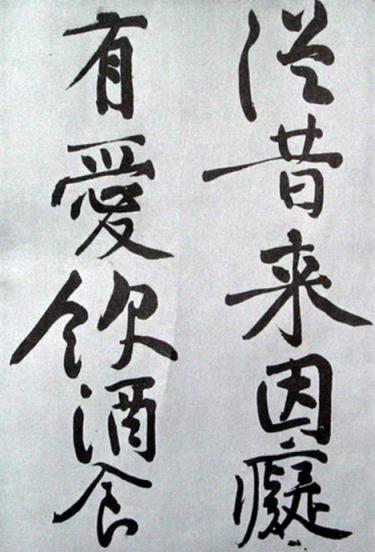 従昔来因癡
有愛飲酒食